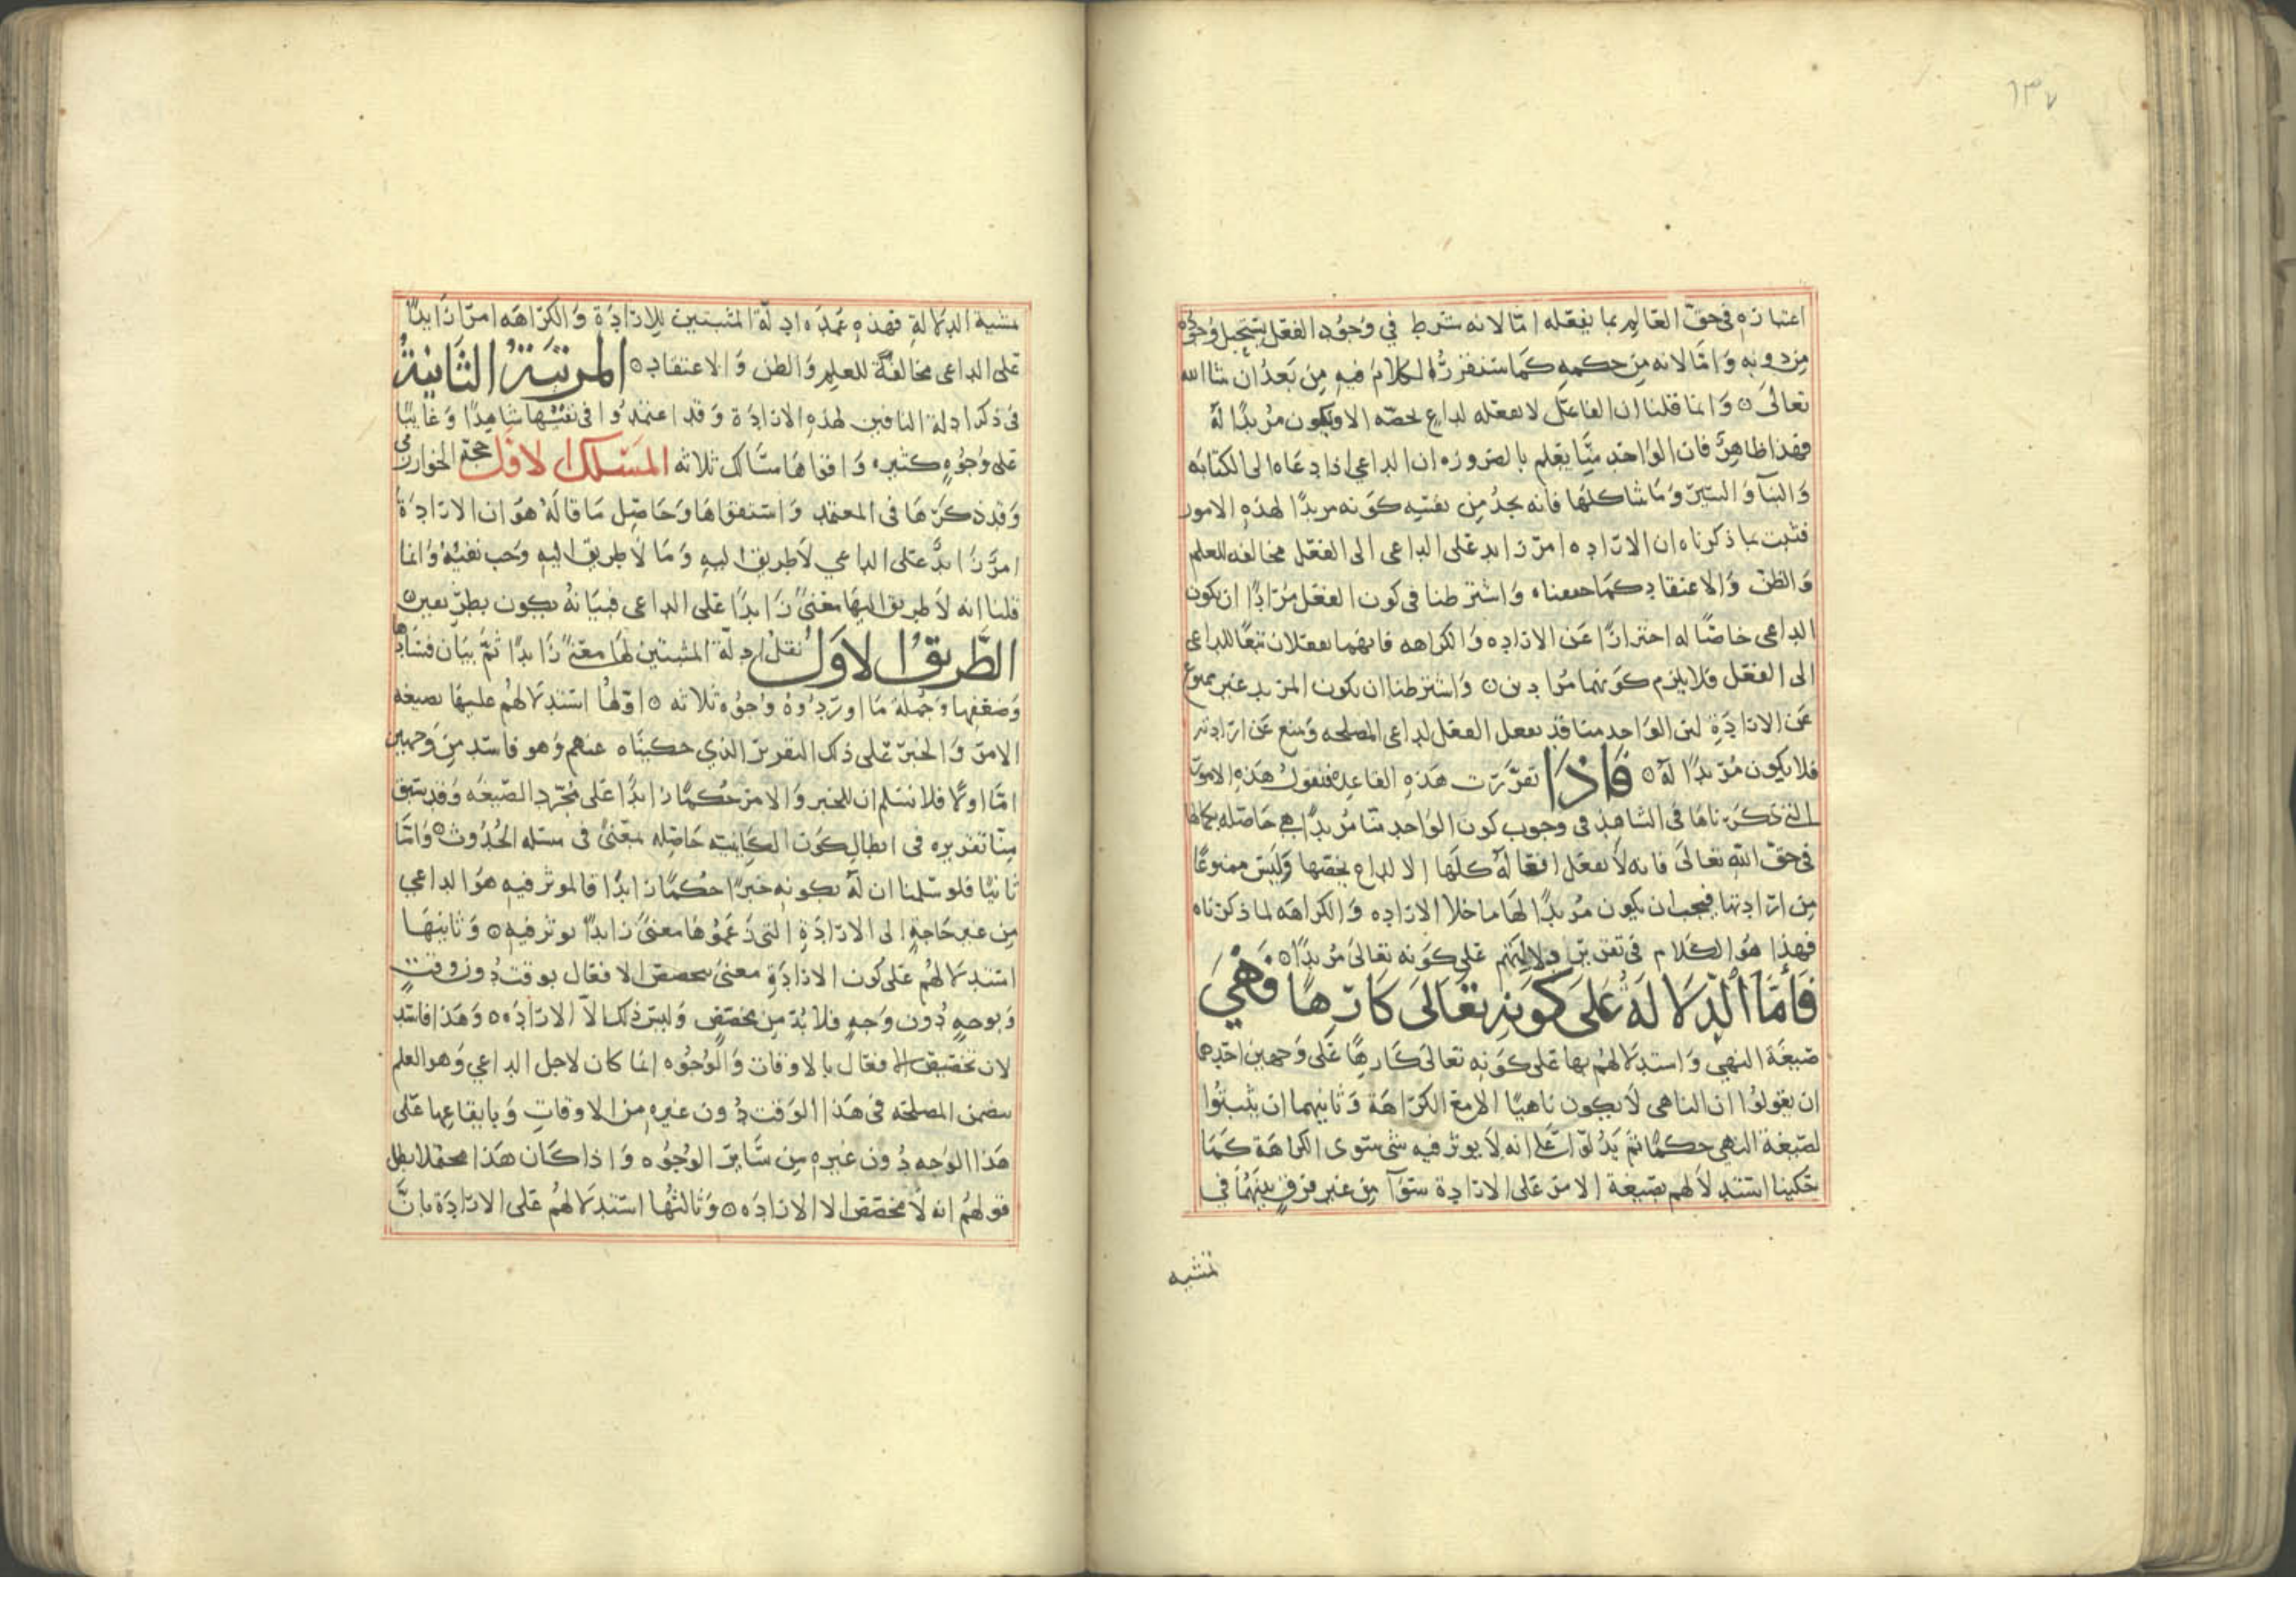 ١٣٧
اعتباره في حق العالم بما يفعله امّا لانه شرط في وجود الفعل يستحيل وجوده
من دونه وَامّا لانه من حكمه كما سنقرر الكلام فيه من بعد ان شا الله
تعالى ٥ وَانما قلنا ان الفاعل لا يفعله لداعٍ يخصّه الا ويكون مريدًا له
فهذا ظاهر فان الواحد منّا يعلم بالضروره ان الداعي اذا دعاه الى الكتابه
وَالبنآ وَالسير وَما شاكلها فانه يجد من نفسه كونه مريدًا لهذه الامور
فثبت بما ذكرناه ان الاراده امر زايد على الداعي الى الفعل مخالفه للعلم
وَالظن وَالاعتقاد كما حققناه وَاشترطنا في كون الفعل مرادًا ان يكون
الداعي خاصًا له احترازًا عن الاراده وَالكراهه فانهما يفعلان تبعًا للداعي
الى الفعل فلا يلزم كونهما مرادين ٥ وَاشترطنا ان يكون المريد غير ممنوع
عن الارادة لان الواحد منا قد يفعل الفعل لداعي المصلحه وَيمنع عن ارادته
فلا يكون مريدًا له ٥ فَاذَا تقرّرت هذه القاعده فنقول هذه الامور
التي ذكرناها في الشاهد في وجوب كون الواحد منّا مريدًا هي حاصله بكمالها
في حق الله تعالى فانه لا يفعل افعاله كلها الا لداعٍ يخصها وَليس ممنوعًا
من ارادتها فيجب ان يكون مريدًا لها ما خلا الاراده وَالكراهه لما ذكرناه
فهذا هو الكلام في تقرير دلالتهم على كونه تعالى مريدًا ٥
فَأمّا الدِلالَة عَلى كونهِ تعَالى كَارِهًا وَهْيَ
صيغة النهي وَاستدلالهم بها على كونه تعالى كارهًا على وَجهين احدهما
ان يقولوا ان الناهي لا يكون ناهيًا الا مع الكراهة وَثانيهما ان يثبتوا
لصيغة النهي حكمًا ثم يدلوا على انه لا يوثر فيه شي سوى الكراهة كما
حكينا استدلالهم بصيغة الامر على الارادة سوآ من غير فرق بينهما في
تمشيه
تمشية الدلالة فهذه عمده ادلّة المثبتين للارادة وَالكراهه امرًا زايدًا
على الداعي مخالفةً للعلم وَالظن وَالاعتقاد ٥ المرتبَة الثَانيَة
في ذكر ادلة النافين لهذه الارادة وَقد اعتمدوا في نفيها شاهدًا وَغايبًا
على وجوهٍ كثيره وَاقواها مسالك ثلاثه المَسْلك الاول حجة الخوارزمي
وَقد ذكرها في المعتمد وَاستقواها وَحاصل ما قاله هو ان الارادة
امرٌ زايدٌ على الداعي لا طريق اليه وَما لا طريق اليه وَجب نفيه وَانما
قلنا انه لا طريق اليها معنىً زايدًا على الداعي فبيانه يكون بطريقين ٥
الطَّريقُ الاوَلُ نقل ادلّة المثبتين لها معنىً زايدًا ثم بيان فسادها
وَضعفها وَجملة ما اوردوه وجوه ثلاثه ٥ اوّلها استدلالهم عليها بصيغه
الامر وَالخبر على ذلك التقرير الذي حكيناه عنهم وَهو فاسد من وَجهين
امّا اولًا فلا نسلم ان للخبر وَالامر حكمًا زايدًا على مجرّد الصيغه وَقد سبق
منّا تقريره في ابطال كون الكاينيه حاصله بمعنىً في مسئله الحدوث ٥ وَامّا
ثانيًا فلو سلمنا ان له بكونه خبرًا حكمًا زايدًا فالموثر فيه هو الداعي
من غير حاجةٍ الى الارادة التي زعموها معنىً زايدًا يوثر فيه ٥ وَثانيها
استدلالهم على كون الارادة معنىً بتخصص الافعال بوقت دون وقتٍ
وَبوجهٍ دون وجهٍ فلا بدّ من مخصّص وَليس ذلك الا الاراده ٥ وَهذا فاسد
لان تخصيص الافعال بالاوقات وَالوجوه انما كان لاجل الداعي وَهو العلم
بتضمن المصلحه في هذا الوقت دون غيره من الاوقات وَبايقاعها على
هذا الوجه دون غيره من ساير الوجوه وَاذا كان هذا محتملا بطل
قولهم انه لا مخصّص الا الاراده ٥ وَثالثها استدلالهم على الارادة بانّ